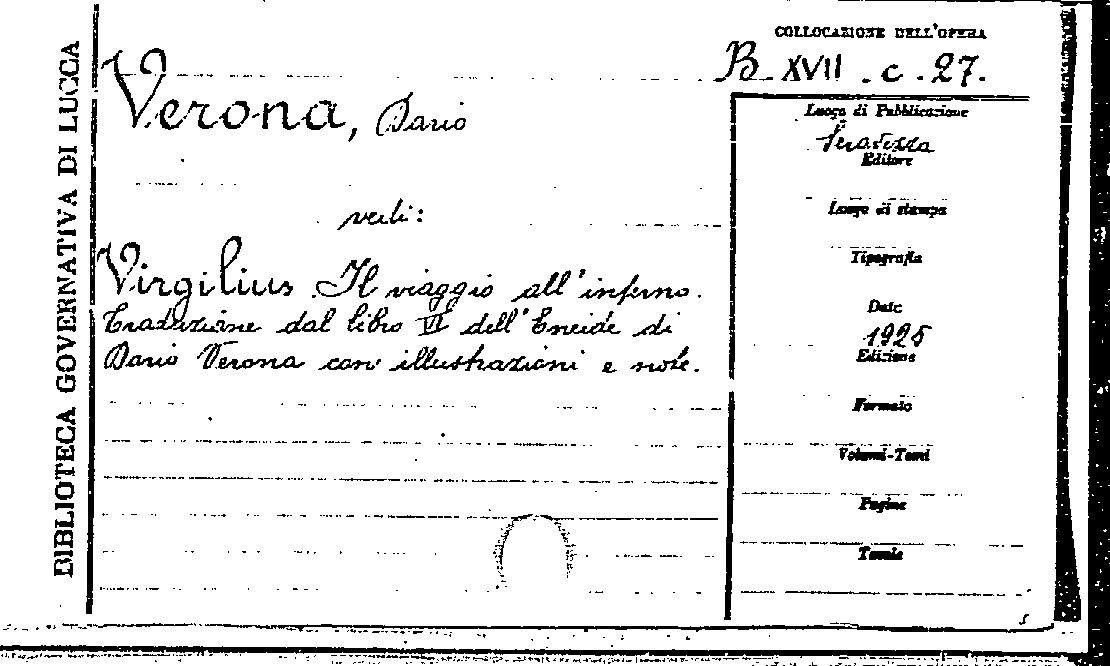 BIBLIOTECA GOVERNATIVA DI LUCCA
COLLOCAZIONE DELL'OPERA
B XVII . c . 27.
Verona, Dario
vedi:
Virgilius Il viaggio all'inferno.
Traduzione dal libro VI dell'Eneide di
Dario Verona con illustrazioni e note.
Luogo di Pubblicazione
Seravezza
Editore
Luogo di stampa
Tipografia
Date
1925
Edizione
Formato
Volumi-Tomi
Pagine
Tavole